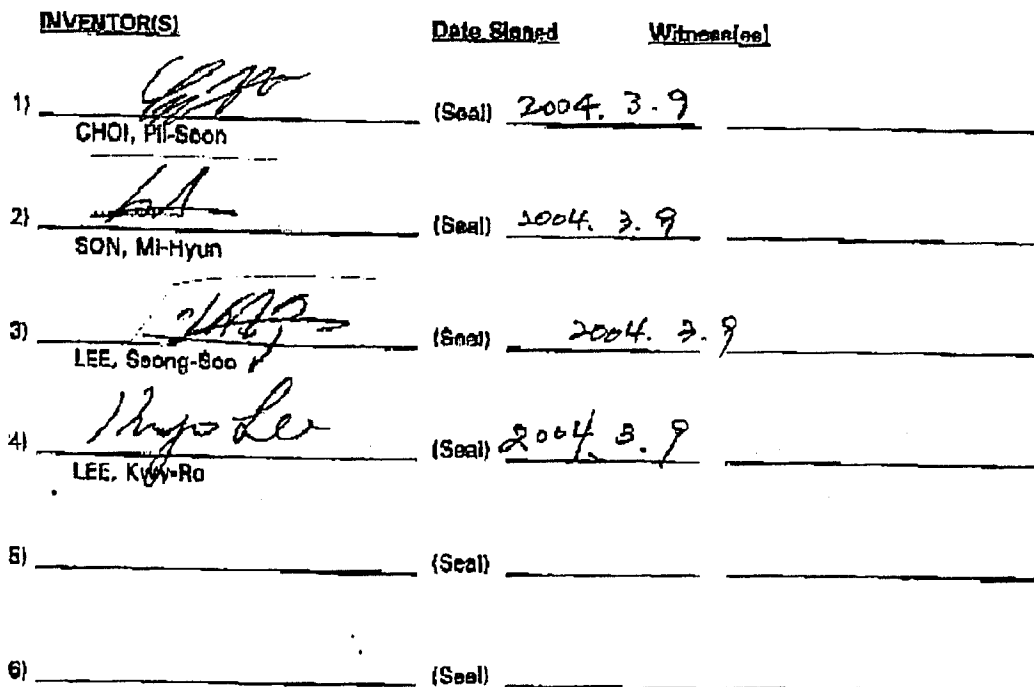 INVENTOR(S) Date Signed Witness(es)
1) (Seal) 2004. 3. 9
CHOI, Pil-Soon
2) (Seal) 2004. 3. 9
SON, Mi-Hyun
3) (Seal) 2004. 3. 9
LEE, Seong-Soo
4) Lee (Seal) 2004. 3. 9
LEE, Kwy-Ro
5) (Seal)
6) (Seal)